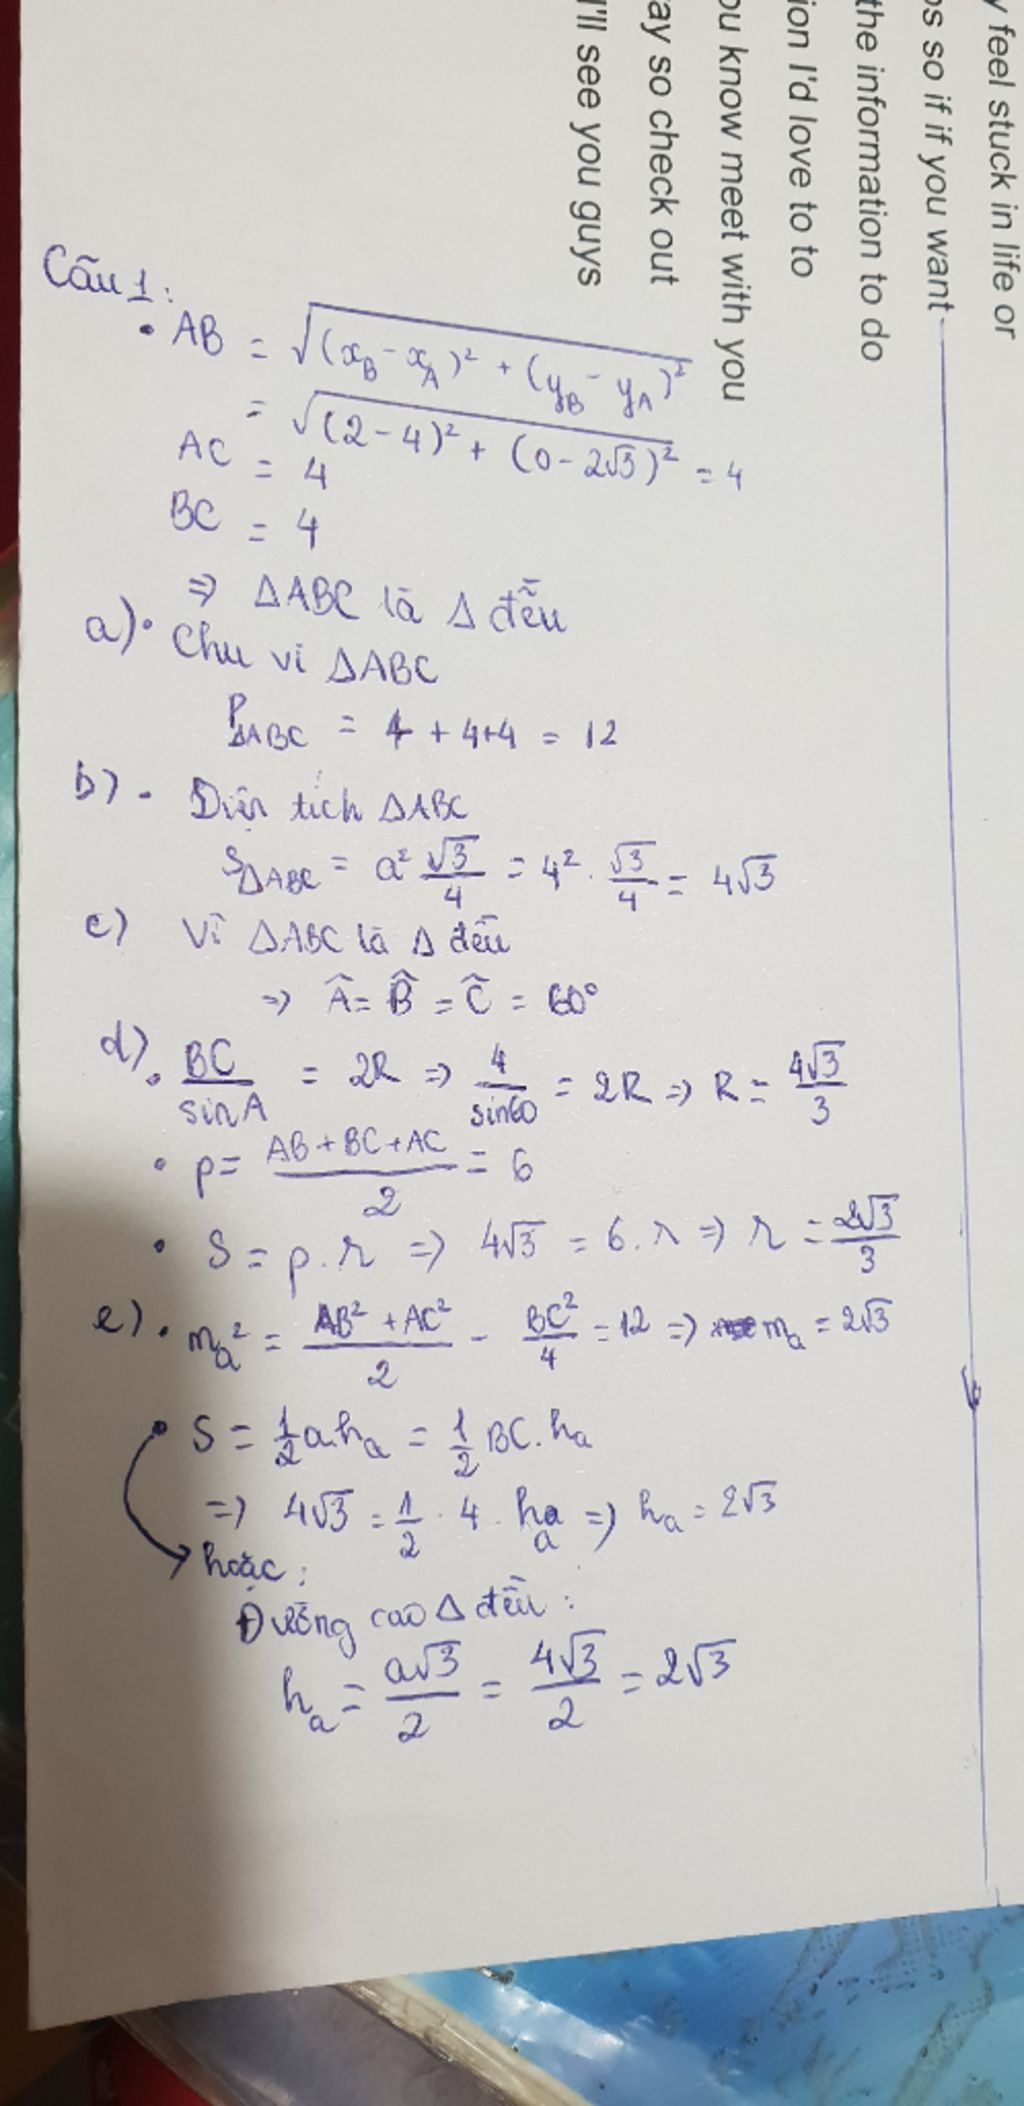 y feel stuck in life or
os so if if you want
the information to do
ion I'd love to to
ou know meet with you
ay so check out
I'll see you guys
Câu 1:
• AB = √((x_B - x_A)² + (y_B - y_A)²)
= √((2 - 4)² + (0 - 2√3)²) = 4
AC = 4
BC = 4
⇒ ΔABC là Δ đều
a) • Chu vi ΔABC
P_ΔABC = 4 + 4+4 = 12
b) - Diện tích ΔABC
S_ΔABC = a² √3/4 = 4² . √3/4 = 4√3
c) Vì ΔABC là Δ đều
⇒ Â = B̂ = Ĉ = 60°
d) • BC/sin A = 2R ⇒ 4/sin60 = 2R ⇒ R = 4√3/3
• p = (AB + BC + AC)/2 = 6
• S = p.r ⇒ 4√3 = 6.r ⇒ r = 2√3/3
e) • m_a² = (AB² + AC²)/2 - BC²/4 = 12 ⇒ m_a = 2√3
• S = 1/2 a.h_a = 1/2 BC.h_a
⇒ 4√3 = 1/2 . 4 . h_a ⇒ h_a = 2√3
hoặc:
Đường cao Δ đều:
h_a = a√3/2 = 4√3/2 = 2√3